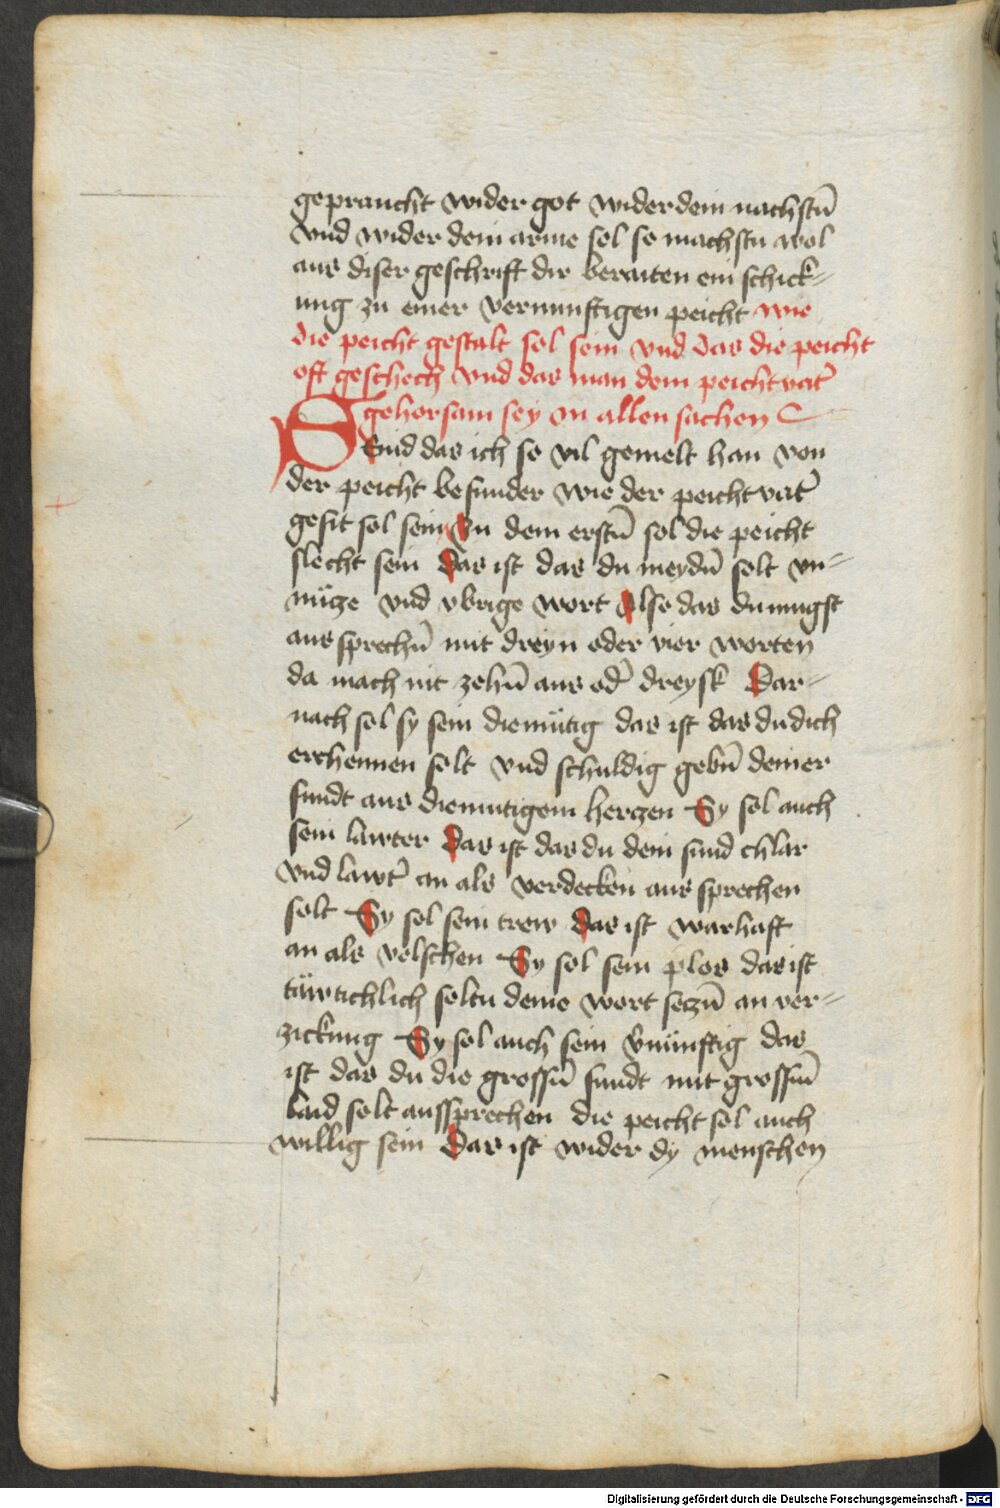 gepraucht wider got wider dein nachstn̄
vnd wider dein arme sel so machstu wol
aus diser geschrift dir beraiten ein schick-
ung zu einer vernunftigen peicht wie
die peicht gestalt sol sein vnd das die peicht
oft geschech vnd das man dem peichtvat̄
gehorsam sey in allen sachen
Seind das ich so vil gemelt han von
der peicht besunder wie der peichtvat̄
gesit sol sein Zu dem erstn̄ sol die peicht
slecht sein Das ist das du meydn̄ solt vn-
nücze vnd vbrige wort Also das du mugst
aus sprechn̄ mit dreyn oder vier worten
da mach nit zehn̄ aus od̄ dreysk Dar-
nach sol sy sein diemütig das ist das du dich
erchennen solt vnd schuldig gebn̄ deiner
sundt aus diemutigem herczen Sy sol auch
sein lawter Das ist das du dein sund chlar
vnd lawt̄ an als verdecken aus sprechen
solt Sy sol sein trew Das ist warhaft
an als velschen Sy sol sein plos das ist
täwtschlich soltu deine wort seczn̄ an ver-
zickung Sy sol auch sein v̄nünftig das
ist das du die grossn̄ sundt mit grossm̄
laid solt aussprechen die peicht sol auch
willig sein Das ist wider dy menschen
Digitalisierung gefördert durch die Deutsche Forschungsgemeinschaft - DFG